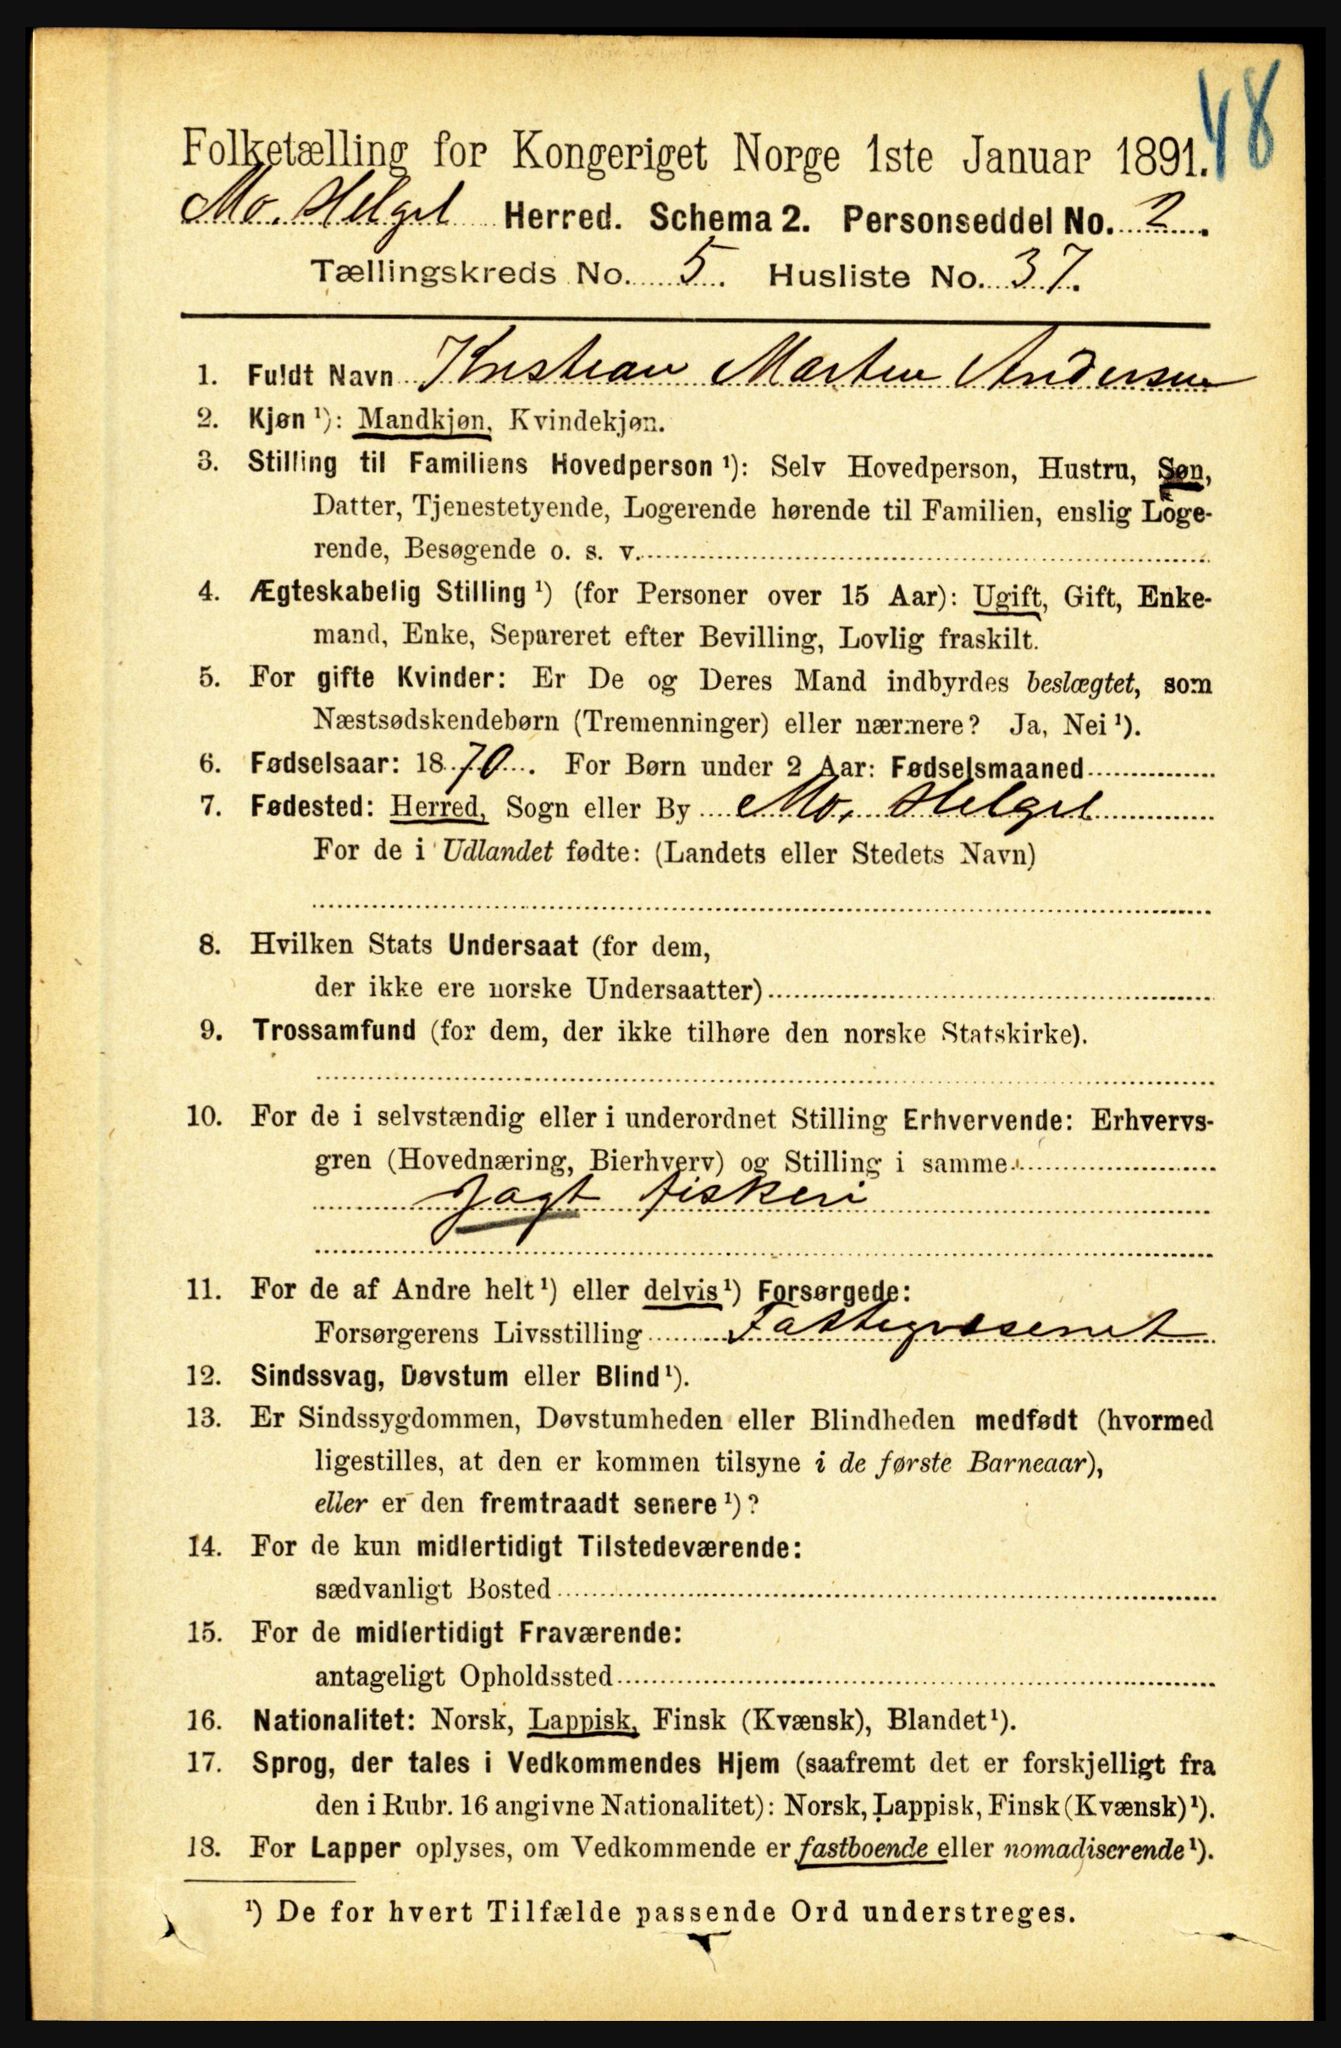 48
Folketælling for Kongeriget Norge 1ste Januar 1891.
Mo. Helgel Herred. Schema 2. Personseddel No. 2.
Tællingskreds No. 5. Husliste No. 37.
1. Fuldt Navn Kristian Marten Andersen
2. Kjøn ¹): Mandkjøn, Kvindekjøn.
3. Stilling til Familiens Hovedperson ¹): Selv Hovedperson, Hustru, Søn,
Datter, Tjenestetyende, Logerende hørende til Familien, enslig Loge-
rende, Besøgende o. s. v.
4. Ægteskabelig Stilling ¹) (for Personer over 15 Aar): Ugift, Gift, Enke-
mand, Enke, Separeret efter Bevilling, Lovlig fraskilt.
5. For gifte Kvinder: Er De og Deres Mand indbyrdes beslægtet, som
Næstsødskendebørn (Tremenninger) eller nærmere? Ja, Nei ¹).
6. Fødselsaar: 1870. For Børn under 2 Aar: Fødselsmaaned
7. Fødested: Herred, Sogn eller By Mo. Helgel
For de i Udlandet fødte: (Landets eller Stedets Navn)
8. Hvilken Stats Undersaat (for dem,
der ikke ere norske Undersaatter)
9. Trossamfund (for dem, der ikke tilhøre den norske Statskirke).
10. For de i selvstændig eller i underordnet Stilling Erhvervende: Erhvervs-
gren (Hovednæring, Bierhverv) og Stilling i samme
Jagt fiskeri
11. For de af Andre helt ¹) eller delvis ¹) Forsørgede:
Forsørgerens Livsstilling Fattigvæsenet
12. Sindssvag, Døvstum eller Blind ¹).
13. Er Sindssygdommen, Døvstumheden eller Blindheden medfødt (hvormed
ligestilles, at den er kommen tilsyne i de første Barneaar),
eller er den fremtraadt senere ¹)?
14. For de kun midlertidigt Tilstedeværende:
sædvanligt Bosted
15. For de midlertidigt Fraværende:
antageligt Opholdssted
16. Nationalitet: Norsk, Lappisk, Finsk (Kvænsk), Blandet ¹).
17. Sprog, der tales i Vedkommendes Hjem (saafremt det er forskjelligt fra
den i Rubr. 16 angivne Nationalitet): Norsk, Lappisk, Finsk (Kvænsk) ¹).
18. For Lapper oplyses, om Vedkommende er fastboende eller nomadiserende ¹).
¹) De for hvert Tilfælde passende Ord understreges.